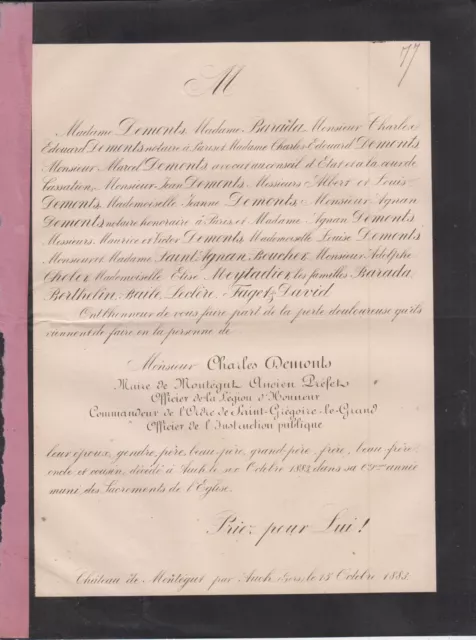 77
M
Madame Demonts, Madame Barada, Monsieur Charles
Edouard Demonts notaire à Paris et Madame Charles Edouard Demonts
Monsieur Marcel Demonts avocat au conseil d'Etat et à la cour de
Cassation, Monsieur Jean Demonts, Messieurs Albert et Louis
Demonts, Mademoiselle Jeanne Demonts, Monsieur Agnan
Demonts notaire honoraire à Paris, et Madame Agnan Demonts
Messieurs Maurice et Victor Demonts, Mademoiselle Louise Demonts
Monsieur et Madame Saint Agnan Boucher, Monsieur Adolphe
Mademoiselle Elise les familles Barada,
Berthelin, Leclère, Faget, David
Ont l'honneur de vous faire part de la perte douloureuse qu'ils
viennent de faire en la personne de
Monsieur Charles Demonts
Maire de Montégut, Ancien Préfet,
Officier de la Légion d'Honneur
Commandeur de l'Ordre de Saint-Grégoire-le-Grand
Officier de l'Instruction publique
leur époux, gendre, père, beau-père, grand-père, frère, beau-frère,
oncle et cousin, décédé à Auch le Octobre 1883, dans sa année
muni des Sacrements de l'Eglise.
Priez pour Lui!
Château de Montégut par Auch, Gers, le 15 Octobre 1883.